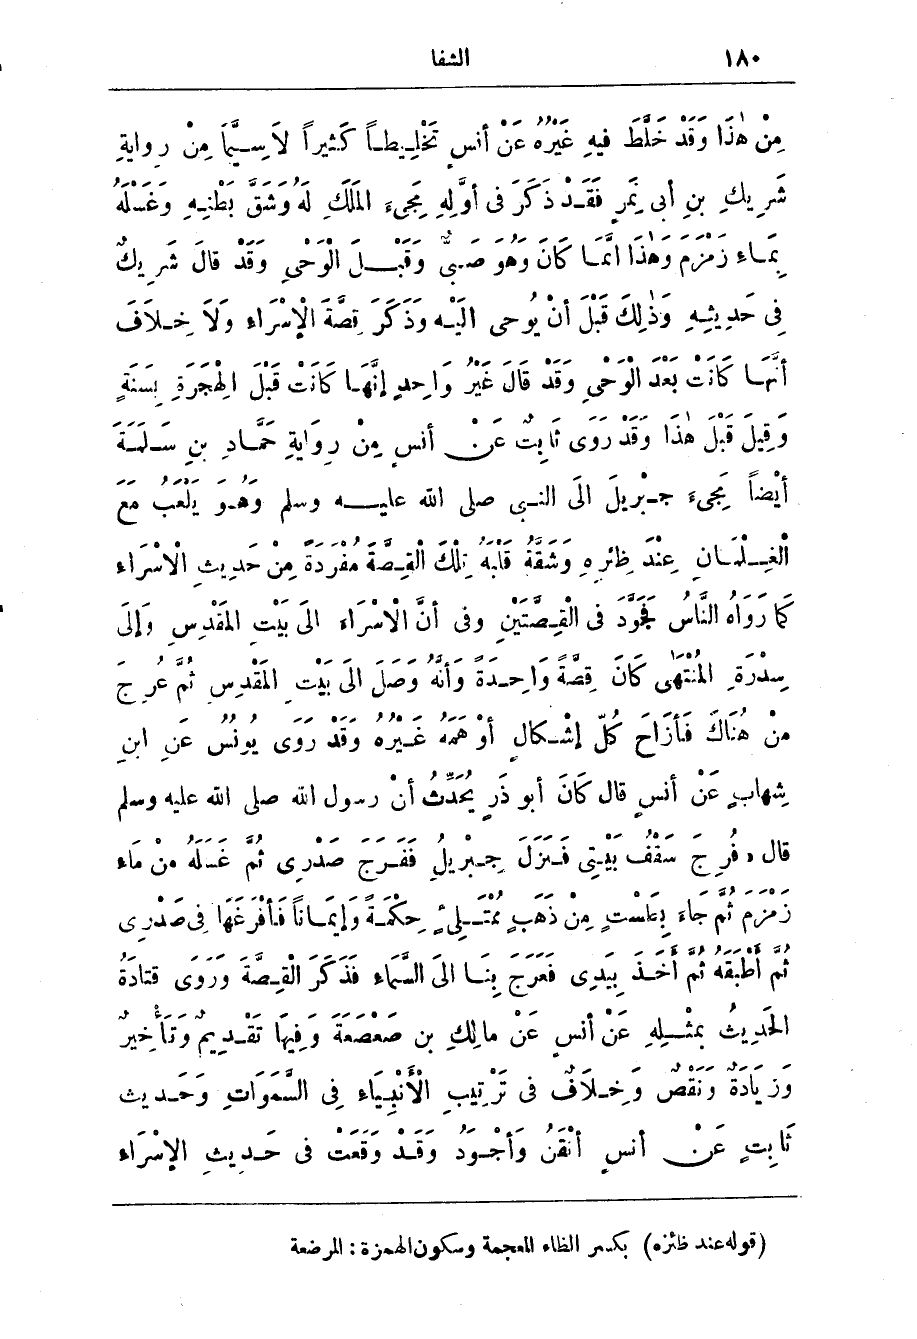 ١٨٠ الشفا
مِنْ هٰذَا وَقَدْ خَلَّطَ فيهِ غَيْرُهُ عَنْ أنسٍ تَخْلِيطاً كَثيراً لاَسِيَّمَا مِنْ رِوايةِ
شَرِيكِ بنِ أبى نَمِرٍ فَقَدْ ذَكَرَ فى أوَّلِهِ مَجِىءَ المَلَكِ لَهُ وَشَقَّ بَطْنِهِ وَغَسْلَهُ
بِمَاءِ زَمْزَمَ وَهٰذَا انَّمَا كَانَ وَهُوَ صَبىٌّ وَقَبْلَ الْوَحْىِ وَقَدْ قالَ شَرِيكٌ
فى حَدِيثِهِ وَذٰلِكَ قَبْلَ أنْ يُوحى اليْهِ وَذَكَرَ قِصَّةَ الْإِسْرَاءِ وَلَا خِلَافَ
أنَّهَا كَانَتْ بَعْدَ الْوَحْىِ وَقَدْ قالَ غَيْرُ وَاحِدٍ إنَّهَا كَانَتْ قَبْلَ الْهِجْرَةِ بِسَنَةٍ
وَقِيلَ قَبْلَ هٰذَا وَقَدْ رَوَى ثَابِتٌ عَنْ أنسٍ مِنْ رِوَايةِ حَمَّادِ بنِ سَلَمَةَ
أيْضاً مَجِىءَ جِبْرِيلَ الَى النبى صلى الله عليه وسلم وَهُوَ يَلْعَبُ مَعَ
الْغِلْمَانِ عِنْدَ ظِئْرِهِ وَشَقَّهُ قَلْبَهُ تِلْكَ الْقِصَّةَ مُفْرَدَةً مِنْ حَدِيثِ الْاسْرَاءِ
كَمَا رَوَاهُ النَّاسُ فَجَوَّدَ فى الْقِصَّتَيْنِ وفى أنَّ الْاسْرَاءَ الَى بَيْتِ المَقْدِسِ وَإلَى
سِدْرَةِ الْمُنْتَهَى كَانَ قِصَّةً وَاحِدَةً وَأنَّهُ وَصَلَ الَى بَيْتِ المَقْدِسِ ثُمَّ عُرِجَ
مِنْ هُنَاكَ فَأزَاحَ كُلَّ إشْكالٍ أوْهَمَهُ غَيْرُهُ وَقَدْ رَوَى يُونُسُ عَنِ ابنِ
شِهابٍ عَنْ أنسٍ قال كَانَ أبو ذَرٍ يُحَدِّثُ أنْ رسول الله صلى الله عليه وسلم
قال «فُرِجَ سَقْفُ بَيْتِى فَنَزَلَ جِبْرِيلُ فَفَرَجَ صَدْرِى ثُمَّ غَسَلَهُ مِنْ مَاءِ
زَمْزَمَ ثُمَّ جَاءَ بِطَسْتٍ مِنْ ذَهَبٍ مُمْتَلِىءٍ حِكْمَةً وَإيمَاناً فَأفْرَغَهَا فى صَدْرِى
ثُمَّ أطْبَقَهُ ثُمَّ أَخَذَ بِيَدِى فَعَرَجَ بِنَا الَى السَّمَاءِ فَذَكَرَ الْقِصَّةَ وَرَوَى قَتادَةُ
الحَدِيثُ بِمِثْلِهِ عَنْ أنسٍ عَنْ مالِكِ بنِ صَعْصَعَةَ وَفِيهَا تَقْدِيمٌ وَتَأْخِيرٌ
وَزِيَادَةٌ وَنَقْصٌ وَخِلَافٌ فى تَرْتِيبِ الْأَنْبِيَاءِ فى السَّمَوَاتِ وَحَدِيث
ثَابِتٍ عَنْ أنسٍ أتْقَنُ وَأجْوَدُ وَقَدْ وَقَعَتْ فى حَدِيثِ الإسْرَاءِ
(قوله عند ظئره) بكسر الظاء المعجمة وسكون الهمزة: المرضعة